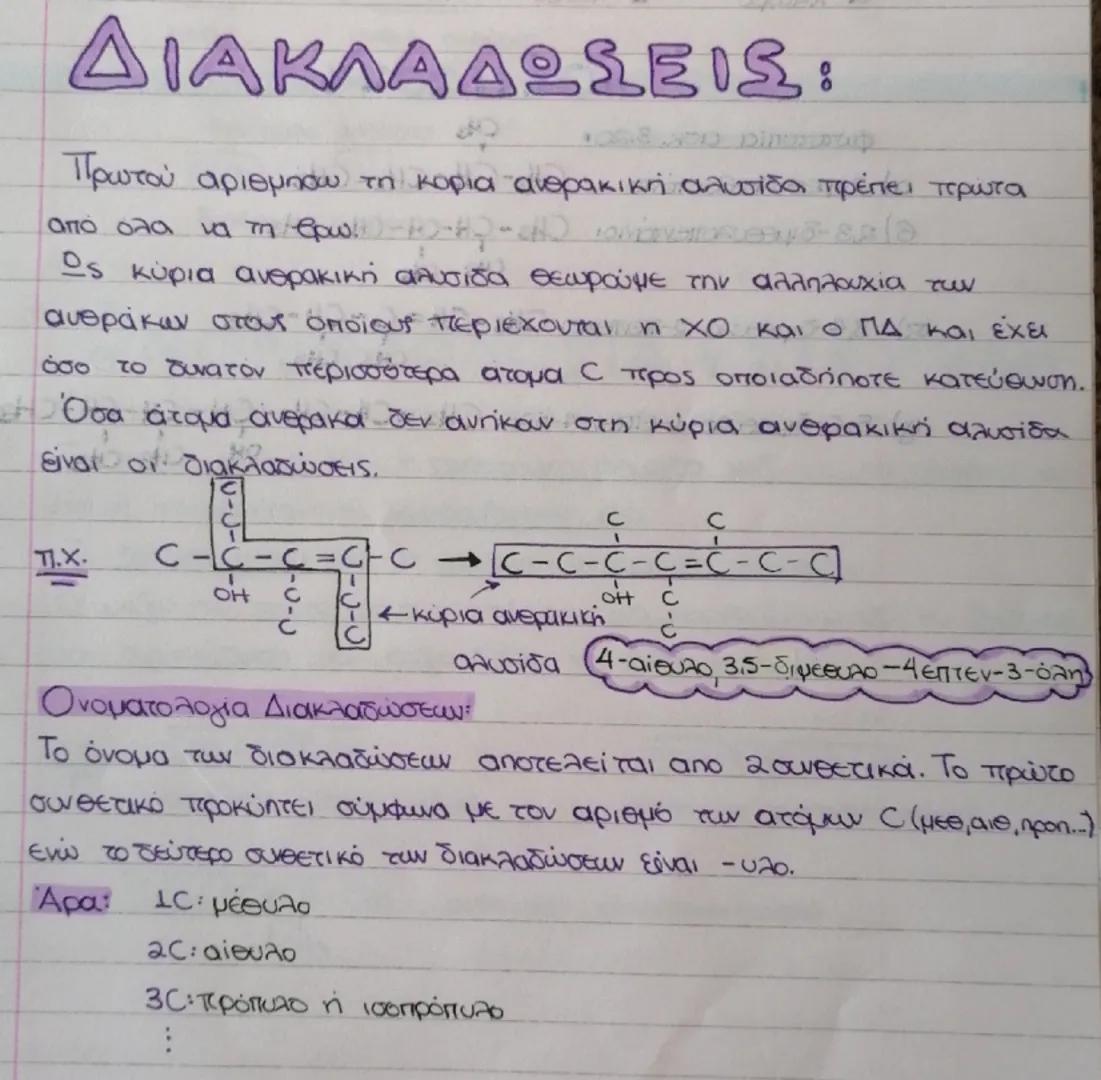 ΔΙΑΚΛΑΔΩΣΕΙΣ:
Πρωτού αριθμήσω τη κύρια ανθρακική αλυσίδα πρέπει πρώτα
από όλα να τη βρω!
Ως κύρια ανθρακική αλυσίδα θεωρούμε την αλληλουχία των
ανθράκων στους οποίους περιέχονται η ΧΟ και ο ΠΔ και έχει
όσο το δυνατόν περισσότερα άτομα C προς οποιαδήποτε κατεύθυνση.
Όσα άτομα άνθρακα δεν ανήκουν στη κύρια ανθρακική αλυσίδα
είναι οι διακλαδώσεις.
C
C C C
π.χ. C - C - C = C - C → C - C - C - C = C - C - C
OH C C ← κύρια ανθρακική OH C
C C C
αλυσίδα 4-αίθυλο, 3,5-διμεθυλο-4επτεν-3-όλη
Ονοματολογία Διακλαδώσεων:
Το όνομα των διακλαδώσεων αποτελείται απο 2 συνθετικά. Το πρώτο
συνθετικό προκύπτει σύμφωνα με τον αριθμό των ατόμων C (μεθ, αιθ, προπ...)
ενώ το δεύτερο συνθετικό των διακλαδώσεων είναι -υλο.
Άρα: 1C: μέθυλο
2C: αίθυλο
3C: πρόπυλο ή ισοπρόπυλο
⋮